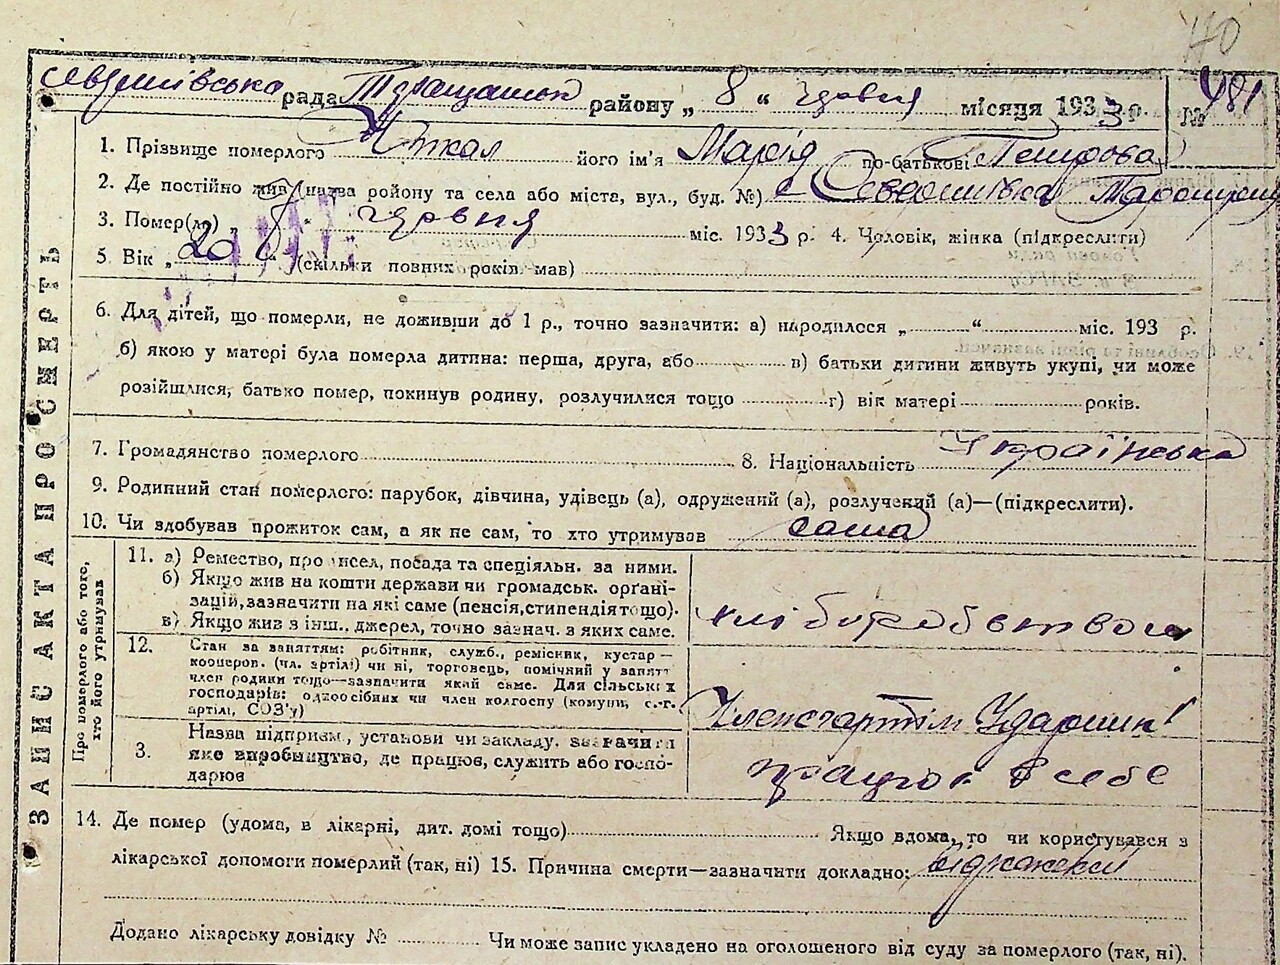 70
рада Таращанськ району „ 8 “ червня місяця 1933 р. № 481
1. Прізвище померлого його ім'я Марія по-батькові Петрова
2. Де постійно жив (назва району та села або міста, вул., буд. №) с
3. Помер(ла) „ 8 червня міс. 1933 р. 4. Чоловік, жінка (підкреслити)
5. Вік „ 20 “ (скільки повних років мав)
6. Для дітей, що померли, не доживши до 1 р., точно зазначити: а) народилося „ “ міс. 193 р.
б) якою у матері була померла дитина: перша, друга, або в) батьки дитини живуть укупі, чи може
розійшлися, батько помер, покинув родину, розлучилися тощо г) вік матері років.
7. Громадянство померлого 8. Національність Українська
9. Родинний стан померлого: парубок, дівчина, удівець (а), одружений (а), розлучений (а)—(підкреслити).
10. Чи здобував прожиток сам, а як не сам, то хто утримував сама
ЗАПИС АКТА ПРО СМЕРТЬ
Про померлого або того, хто його утримував
11. а) Ремество, промисел, посада та спеціяльн. за ними.
б) Якщо жив на кошти держави чи громадськ. орґані-
зацій, зазначити на які саме (пенсія, стипендія тощо).
в) Якщо жив з інш. джерел, точно зазнач. з яких саме.
хліборобством
12. Стан за заняттям: робітник, служб., ремісник, кустар —
кооперов. (чл. артілі) чи ні, торговець, помічний у занятт
член родини тощо—зазначити який саме. Для сільських
господарів: одноосібних чи член колгоспу (комуни, с.-г.
артілі, СОЗ'у)
Член сг артіли Ударник
3. Назва підприєм., установи чи закладу, зазначити
яке виробництво, де працює, служить або госпо-
дарює
працює в себе
14. Де помер (удома, в лікарні, дит. домі тощо) Якщо вдома, то чи користувався з
лікарської допомоги померлий (так, ні) 15. Причина смерти—зазначити докладно:
Додано лікарську довідку № Чи може запис укладено на оголошеного від суду за померлого (так, ні).